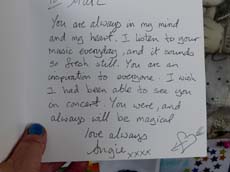 To Marc
You are always in my mind
and my heart. I listen to your
music everyday, and it sounds
so fresh still. You are an
inspiration to everyone. I wish
I had been able to see you
in concert. You were, and
always will be magical
love always
Angie xxxx